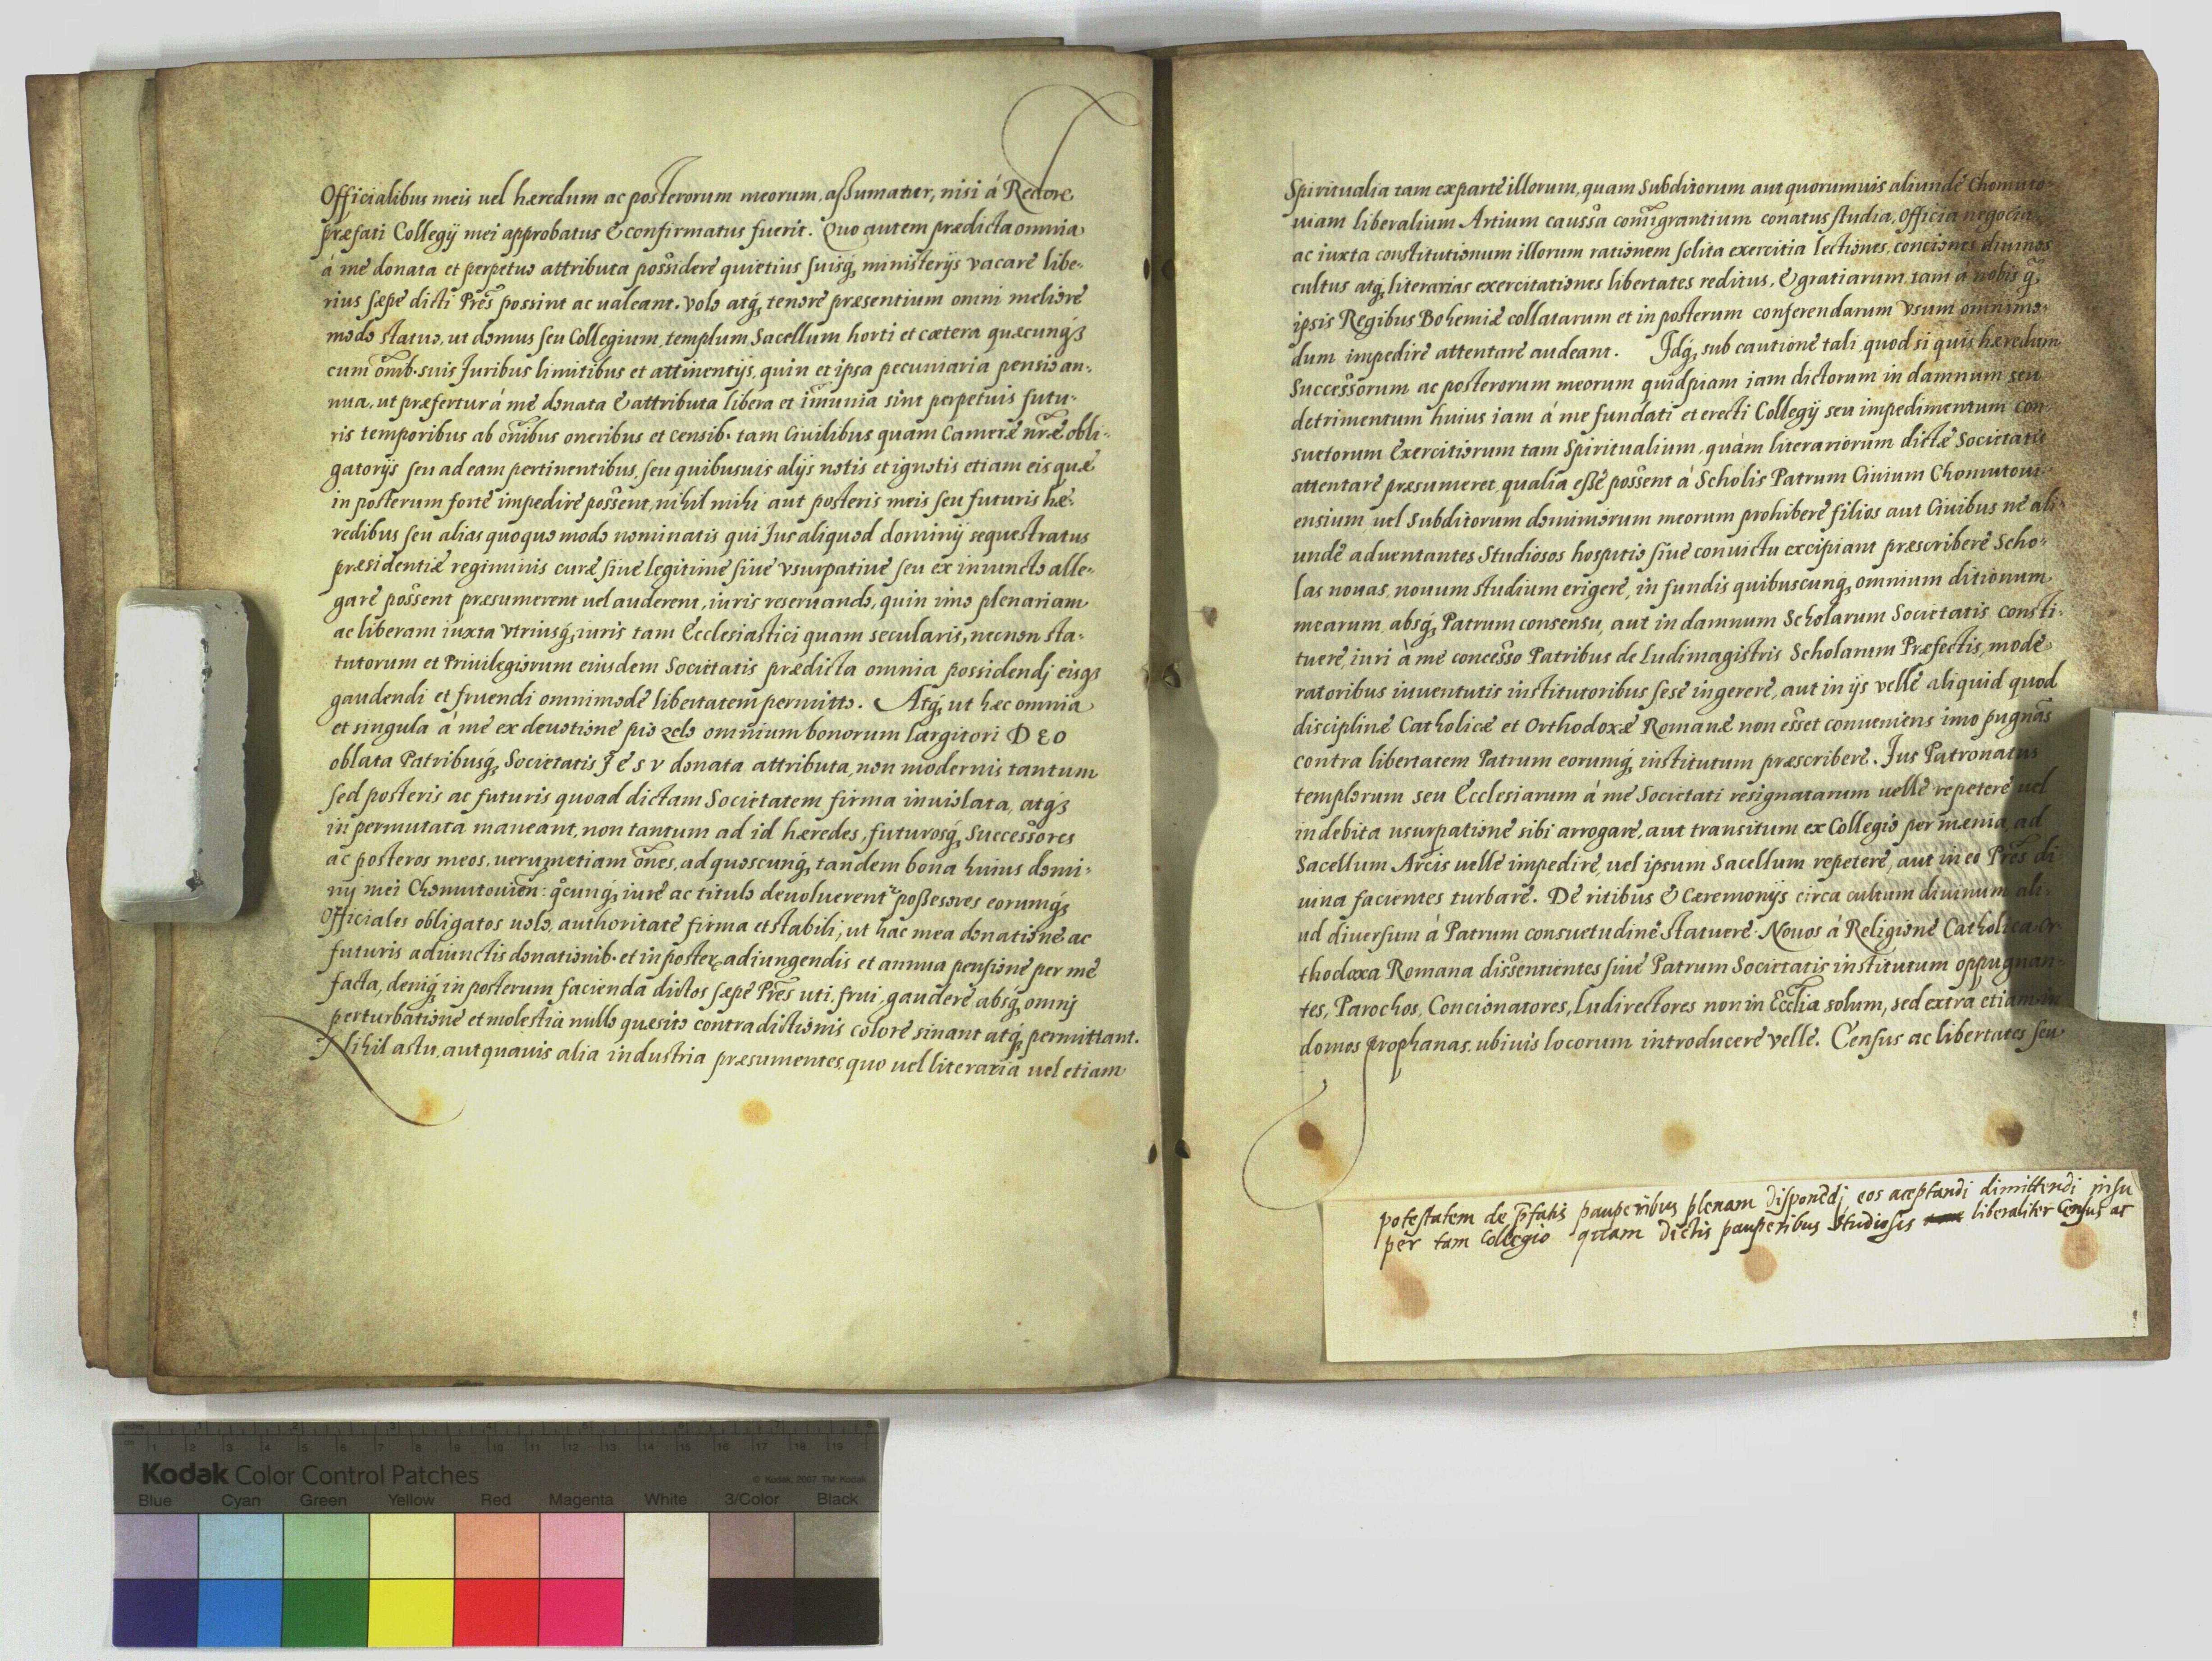 Officialibus meis uel hæredum ac posterorum meorum, assumatur, nisi á Rectore
præfati Collegij mei approbatus & confirmatus fuerit. Quo autem prædicta omnia
á me donata et perpetuo attributa possidere quietius suisq₃ ministerijs vacare libe-
rius sæpe dicti Prẽs possint ac ualeant. Volo atq₃ tenore præsentium omni meliore
modo statuo, ut domus seu Collegium, templum, Sacellum horti et cætera quæcunq₃
cum om̃ib. suis Juribus limitibus et attinentijs, quin et ipsa pecuniaria pensio an-
nua, ut præfertur á me donata & attributa libera et im̃unia sint perpetuis futu-
ris temporibus ab om̃ibus oneribus et censib. tam Ciuilibus quam Cameræ nr̃æ obli-
gatorijs seu ad eam pertinentibus, seu quibusuis alijs notis et ignotis etiam eis quæ
in posterum forte impedire possent, nihil mihi aut posteris meis seu futuris hæ-
redibus seu alias quoquo modo nominatis qui Jus aliquod dominij sequestratus
præsidentiæ regiminis curæ siue legitime siue vsurpatiue seu ex iniuncto alle-
gare possent præsumerent uel auderent, iuris reseruando, quin imo plenariam
ac liberam iuxta vtriusq₃ iuris tam Ecclesiastici quam secularis, necnon sta-
tutorum et Priuilegiorum eiusdem Societatis prædicta omnia possidendj eisq₃
gaudendi et fruendi omnimode libertatem permitto. Atq₃ ut hæc omnia
et singula á me ex deuotione pio zelo omnium bonorum largitori DEO
oblata Patribusq₃ Societatis JESV donata attributa, non modernis tantum
sed posteris ac futuris quoad dictam Societatem firma inuiolata, atq₃
in permutata maneant, non tantum ad id hæredes, futurosq₃ Successores
ac posteros meos, uerumetiam om̃es, ad quoscunq₃ tandem bona huius domi-
nij mei Chomutouien̄: q̊cunq₃ iure ac titulo deuoluerent᷑ possesores eorumq₃
Officiales obligatos uolo, authoritate firma et stabili, ut hac mea donatione ac
futuris adiunctis donationib. et in poster₃ adiungendis et annua pensione per me
facta, deniq₃ in posterum facienda dictos sæpe Prẽs uti, frui, gaudere absq₃ omnj
perturbatione et molestia nullo quæsito contradictionis colore sinant atq₃ permittant.
Nihil astu, aut quauis alia industria præsumentes, quo uel literaria uel etiam
Spiritualia tam ex parte illorum, quam Subditorum aut quorumuis aliunde Chomuto-
uiam liberalium Artium caussa com̃igrantium conatus studia, Officia negocia
ac iuxta constitutionum illorum rationem solita exercitia lectiones, conciones diuinos
cultus atq₃ literarias exercitationes libertates reditus, & gratiarum tam á nobis q̃
ipsis Regibus Bohemiæ collatarum et in posterum conferendarum Vsum omnimo-
dum impedire attentare audeant. Idq₃ sub cautione tali quod si quis hæredum
Successorum ac posterorum meorum quidpiam iam dictorum in damnum seu
detrimentum huius iam á me fundati et erecti Collegij seu impedimentum con-
suetorum Exercitiorum tam Spiritualium, quàm literariorum dictæ Societatis
attentare præsumeret, qualia esse possent á Scholis Patrum Ciuium Chomutoui-
ensium uel Subditorum dominiorum meorum prohibere filios aut Ciuibus ne ali-
unde aduentantes Studiosos hospitio siue conuictu excipiant præscribere Scho-
las nouas, nouum studium erigere, in fundis quibuscunq₃ omnium ditionum
mearum, absq₃ Patrum consensu, aut in damnum Scholarum Societatis consti-
tuere, iuri à me concesso Patribus de Ludimagistris Scholarum Præfectis, mode-
ratoribus iuuentutis institutoribus sese ingerere, aut in ijs velle aliquid quod
disciplinæ Catholicæ et Orthodoxæ Romanæ non esset conueniens imo pugnãs
contra libertatem Patrum eorumq₃ institutum præscribere. Jus Patronatus
templorum seu Ecclesiarum á me Societati resignatarum uelle repetere uel
indebita usurpatione sibi arrogare, aut transitum ex Collegio per mænia, ad
Sacellum Arcis uelle impedire, uel ipsum Sacellum repetere, aut in eo Prẽs di
uina facientes turbare. De ritibus & Cæremonijs circa cultum diuinum ali-
ud diuersum á Patrum consuetudine statuere. Nouos á Religione Catholica Or-
thodoxa Romana dissentientes siue Patrum Societatis institutum oppugnan-
tes, Parochos, Concionatores, Ludirectores non in Ecclĩa solum, sed extra etiam in
domos prophanas, ubiuis locorum introducere velle. Census ac libertates seu
potestatem de p̃fatis pauperibus plenam disponẽdj eos aceptandi dimittendi insu
per tam Collegio quam dictis pauperibus Studiosis liberaliter Census ac
Kodak Color Control Patches
© Kodak, 2007 TM: Kodak
Blue Cyan Green Yellow Red Magenta White 3/Color Black